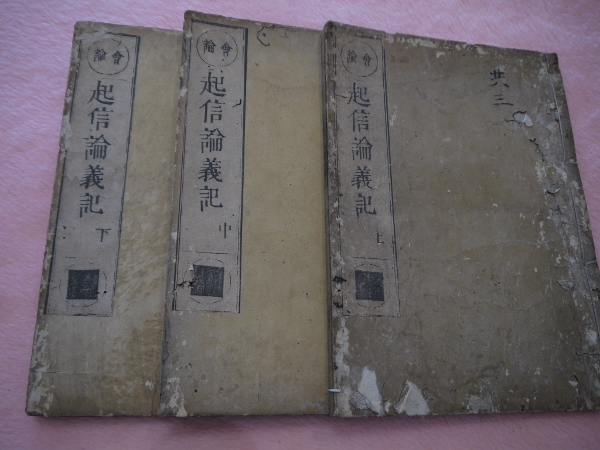 會論
起信論義記
上
共三
會論
起信論義記
中
會論
起信論義記
下